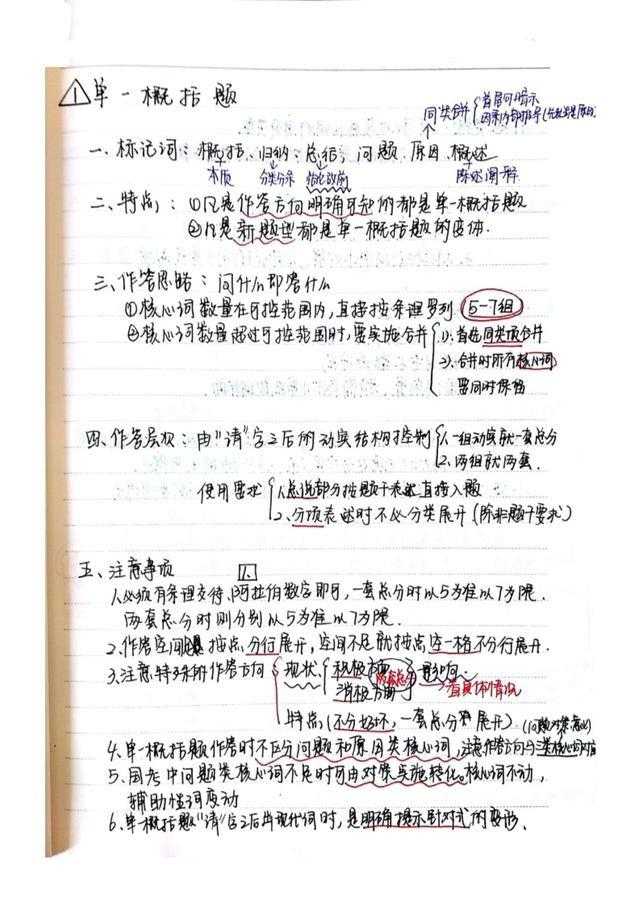 ① 单一概括题
同类合并 { 首层可暗示
一、标记词：概括、归纳、总结，问题、原因、概述
本质 分类分条 陈述阐释
二、特点：①凡是作答方向明确可知的都是单一概括题
②凡是新题型都是单一概括题的变体.
三、作答思路：问什么即答什么
①核心词数量在可控范围内，直接按条理罗列 5-7组
②核心词数量超过可控范围时，要实施合并 { 1). 首选同类项合并
2). 合并时所有核心词
要同时保留
四、作答层次：由"请"字之后的动宾结构控制 { 1. 一组动宾就一套总分
2. 两组就两套.
使用要求 { 1. 总说部分按题干表述直接入题
2、分项表述时不必分类展开(除非题干要求)
五、注意事项
1.必须有条理支持、阿拉伯数字即可，一套总分时以5为准以7为限.
两套总分时则分别以5为准以7为限.
2.作答空间 按点、分行展开，空间不足就按点空一格不分行展开.
3.注意特殊的作答方向 { 现状 { 积极方面 影响
消极方面 看具体情况
特点(不分好坏，一套总分 展开)
4. 单一概括题作答时不区分问题和原因类核心词，注意作答方向与
5. 国考中问题类核心词不足时可由对策实施转化。核心词不动，
辅助性词变动
6.单一概括题"请"字之后出现代词时，是明确提示针对式的变形.